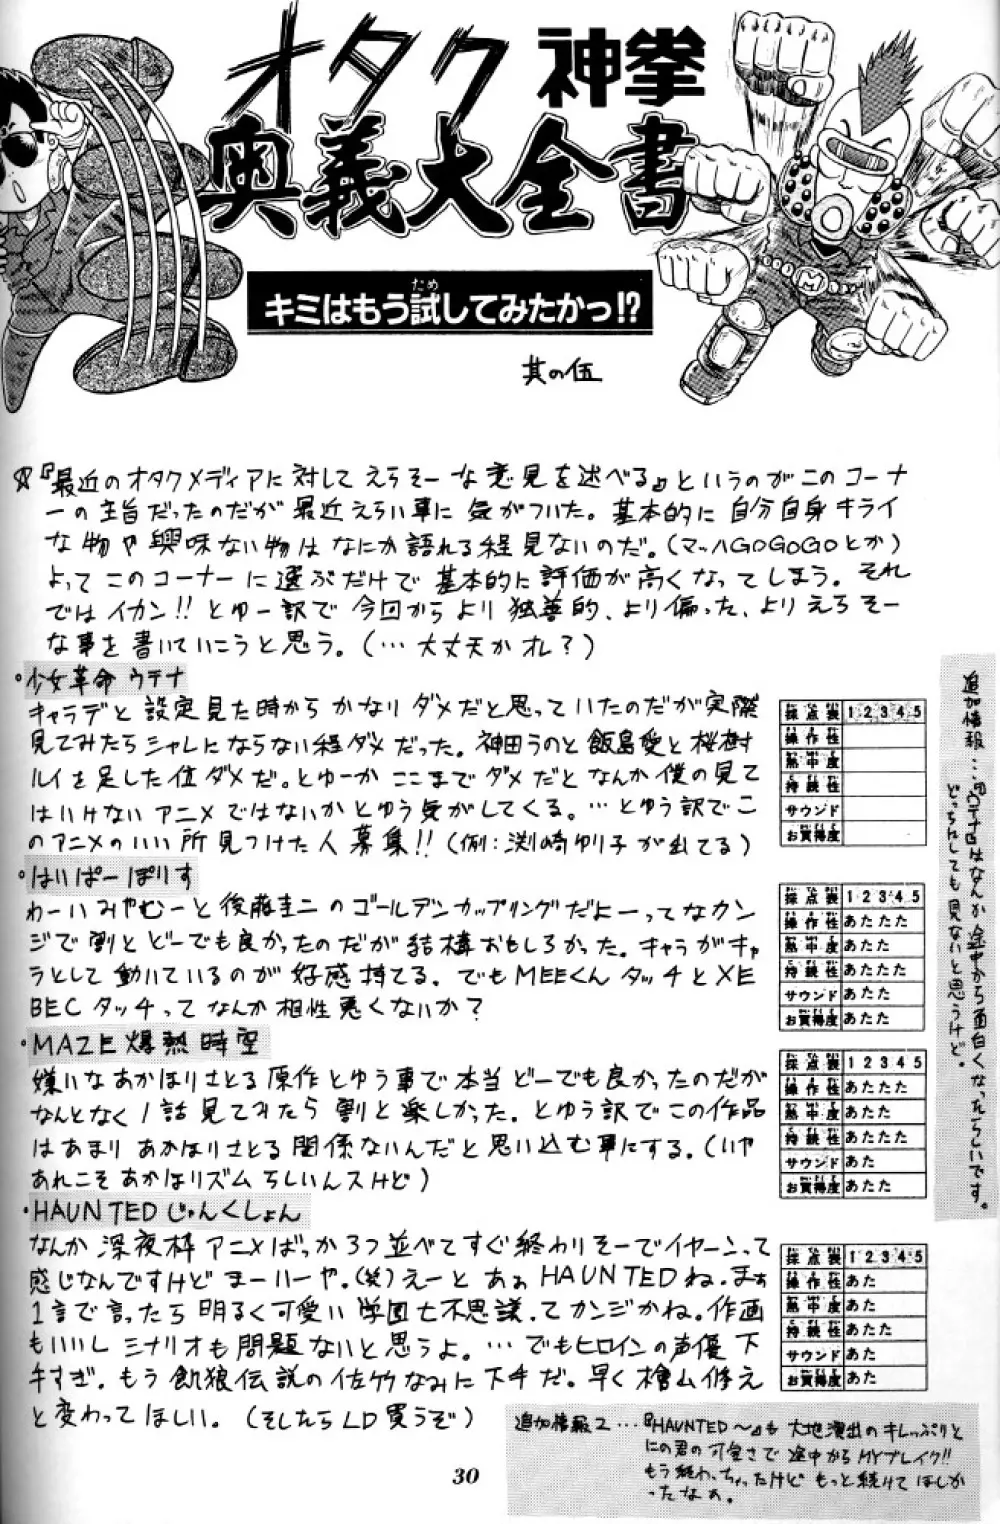 オタク神拳
奥義大全書
キミはもう試してみたかっ!?
ため
其の伍
☆『最近のオタクメディアに対してえらそーな意見を述べる』というのがこのコーナ
ーの主旨だったのだが最近えらい事に気がついた。基本的に自分自身キライ
な物や興味ない物はなにか語れる程見ないのだ。(マッハGOGOGOとか)
よってこのコーナーに選ぶだけで基本的に評価が高くなってしまう。それ
ではイカン!!とゆー訳で今回からより独善的、より偏った、よりえらそー
な事を書いていこうと思う。(…大丈夫かオレ?)
・少女革命ウテナ
キャラデと設定見た時からかなりダメだと思っていたのだが実際
見てみたらシャレにならない程ダメだった。神田うのと飯島愛と桜樹
ルイを足した位ダメだ。とゆーかここまでダメだとなんか僕の見て
はいけないアニメではないかとゆう気がしてくる。…とゆう訳でこ
のアニメのいい所見つけた人募集!!(例:渕崎ゆり子が出てる)
採点表 1 2 3 4 5
操作性
熱中度
持続性
サウンド
お買得度
・はいぱーぽりす
わーいみやむーと後藤圭二のゴールデンカップリングだよーってなカン
ジで割とどーでも良かったのだが結構おもしろかった。キャラがキャ
ラとして動いているのが好感持てる。でもMEEくんタッチとXE
BECタッチってなんか相性悪くないか?
採点表 1 2 3 4 5
操作性 あたたた
熱中度 あたた
持続性 あたたた
サウンド あたた
お買得度 あたた
・MAZE爆熱時空
嫌いなあかほりさとる原作とゆう事で本当どーでも良かったのだが
なんとなく1話見てみたら割と楽しかった。とゆう訳でこの作品
はあまりあかほりさとる関係ないんだと思い込む事にする。(いや
あれこそあかほリズムらしいんスけど)
採点表 1 2 3 4 5
操作性 あたたた
熱中度 あたた
持続性 あたたた
サウンド あた
お買得度 あたた
・HAUNTEDじゃんくしょん
なんか深夜枠アニメばっか3つ並べてすぐ終わりそーでイヤーンって
感じなんですけどまーいーや。(笑)えーとあぁHAUNTEDね。まぁ
1言で言ったら明るく可愛い学園七不思議ってカンジかね。作画
もいいしシナリオも問題ないと思うよ。…でもヒロインの声優下
手すぎ。もう餓狼伝説の佐竹なみに下手だ。早く檜山修え
と変わってほしい。(そしたらLD買うぞ)
採点表 1 2 3 4 5
操作性 あた
熱中度 あたた
持続性 あたた
サウンド あた
お買得度 あたた
追加情報…『ウテナ』はなんか途中から面白くなったらしいです。
どっちにしても見ないと思うけど。
追加情報2…『HAUNTED〜』も大地演出のキレっぷりと
にの君の可愛さで途中からMYブレイク!!
もう終わっちゃったけどもっと続けてほしか
ったなぁ。
30